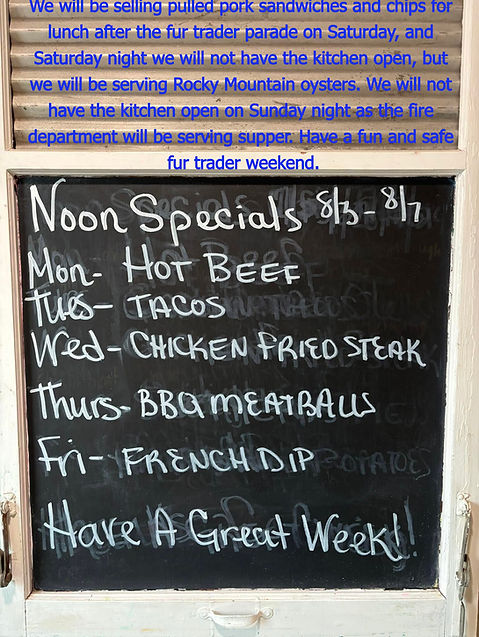 We will be selling pulled pork sandwiches and chips for
lunch after the fur trader parade on Saturday, and
Saturday night we will not have the kitchen open, but
we will be serving Rocky Mountain oysters. We will not
have the kitchen open on Sunday night as the fire
department will be serving supper. Have a fun and safe
fur trader weekend.
Noon Specials 8/3-8/7
Mon- HOT BEEF
Tues- TACOS
Wed- CHICKEN FRIED STEAK
Thurs- BBQ MEATBALLS
Fri- FRENCH DIP
Have A Great Week!